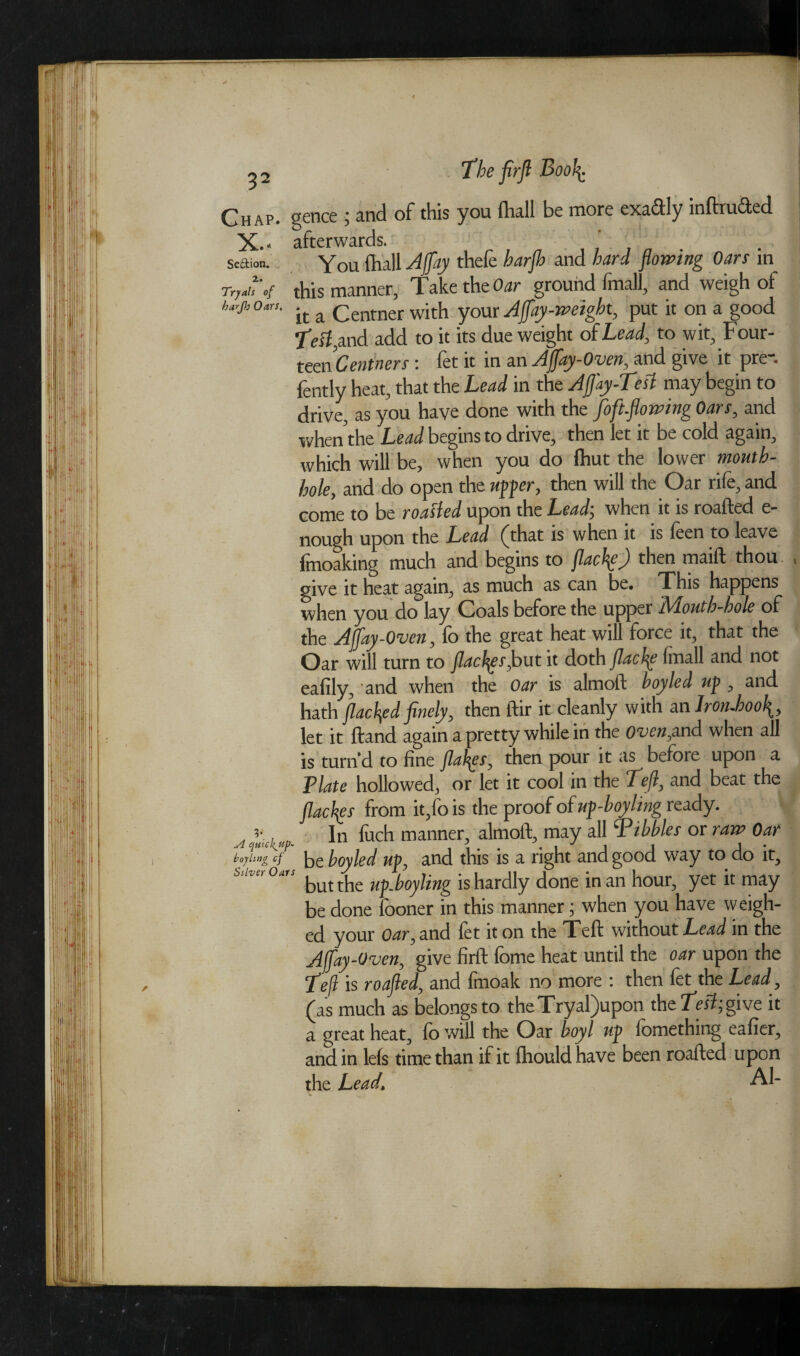 32
The firſt Book.
CHAP.
X.
Section.
2.
Tryals of
harſh Oars.
gence ; and of this you ſhall be more exactly inſtructed
afterwards.
You ſhall Aſſay theſe harſh and hard flowing Oars in
this manner, Take the Oar ground ſmall, and weigh of
it a Centner with your Aſſay-weight, put it on a good
Teſt, and add to it its due weight of Lead, to wit, Four-
teen Centners : ſet it in an Aſſay-Oven, and give it pre-
ſently heat, that the Lead in the Aſſay-Teſt may begin to
drive, as you have done with the ſoft-flowing Oars, and
when the Lead begins to drive, then let it be cold again,
which will be, when you do ſhut the lower mouth-
hole, and do open the upper, then will the Oar riſe, and
come to be roaſted upon the Lead; when it is roaſted e-
nough upon the Lead (that is when it is ſeen to leave
ſmoaking much and begins to ſlacke) then maiſt thou
give it heat again, as much as can be. This happens
when you do lay Coals before the upper Mouth-hole of
the Aſſay-Oven, ſo the great heat will force it, that the
Oar will turn to ſlackes, but it doth ſlacke ſmall and not
eaſily, and when the Oar is almoſt boyled up , and
hath ſlacked finely, then ſtir it cleanly with an Iron-hook,
let it ſtand again a pretty while in the Oven, and when all
is turn'd to fine flakes, then pour it as before upon a
Plate hollowed, or let it cool in the Teſt, and beat the
ſlackes from it, ſo is the proof of up-boyling ready.
3.
A quick up-
boyling of
Silver Oars
In ſuch manner, almoſt, may all Pibbles or raw Oar
be boyled up, and this is a right and good way to do it,
but the up-boyling is hardly done in an hour, yet it may
be done ſooner in this manner ; when you have weigh-
ed your Oar, and ſet it on the Teſt without Lead in the
Aſſay-Oven, give firſt ſome heat until the oar upon the
Teſt is roaſted, and ſmoak no more : then ſet the Lead,
(as much as belongs to the Tryal) upon the Teſt; give it
a great heat, ſo will the Oar boyl up ſomething eaſier,
and in leſs time than if it ſhould have been roaſted upon
the Lead.
Al-